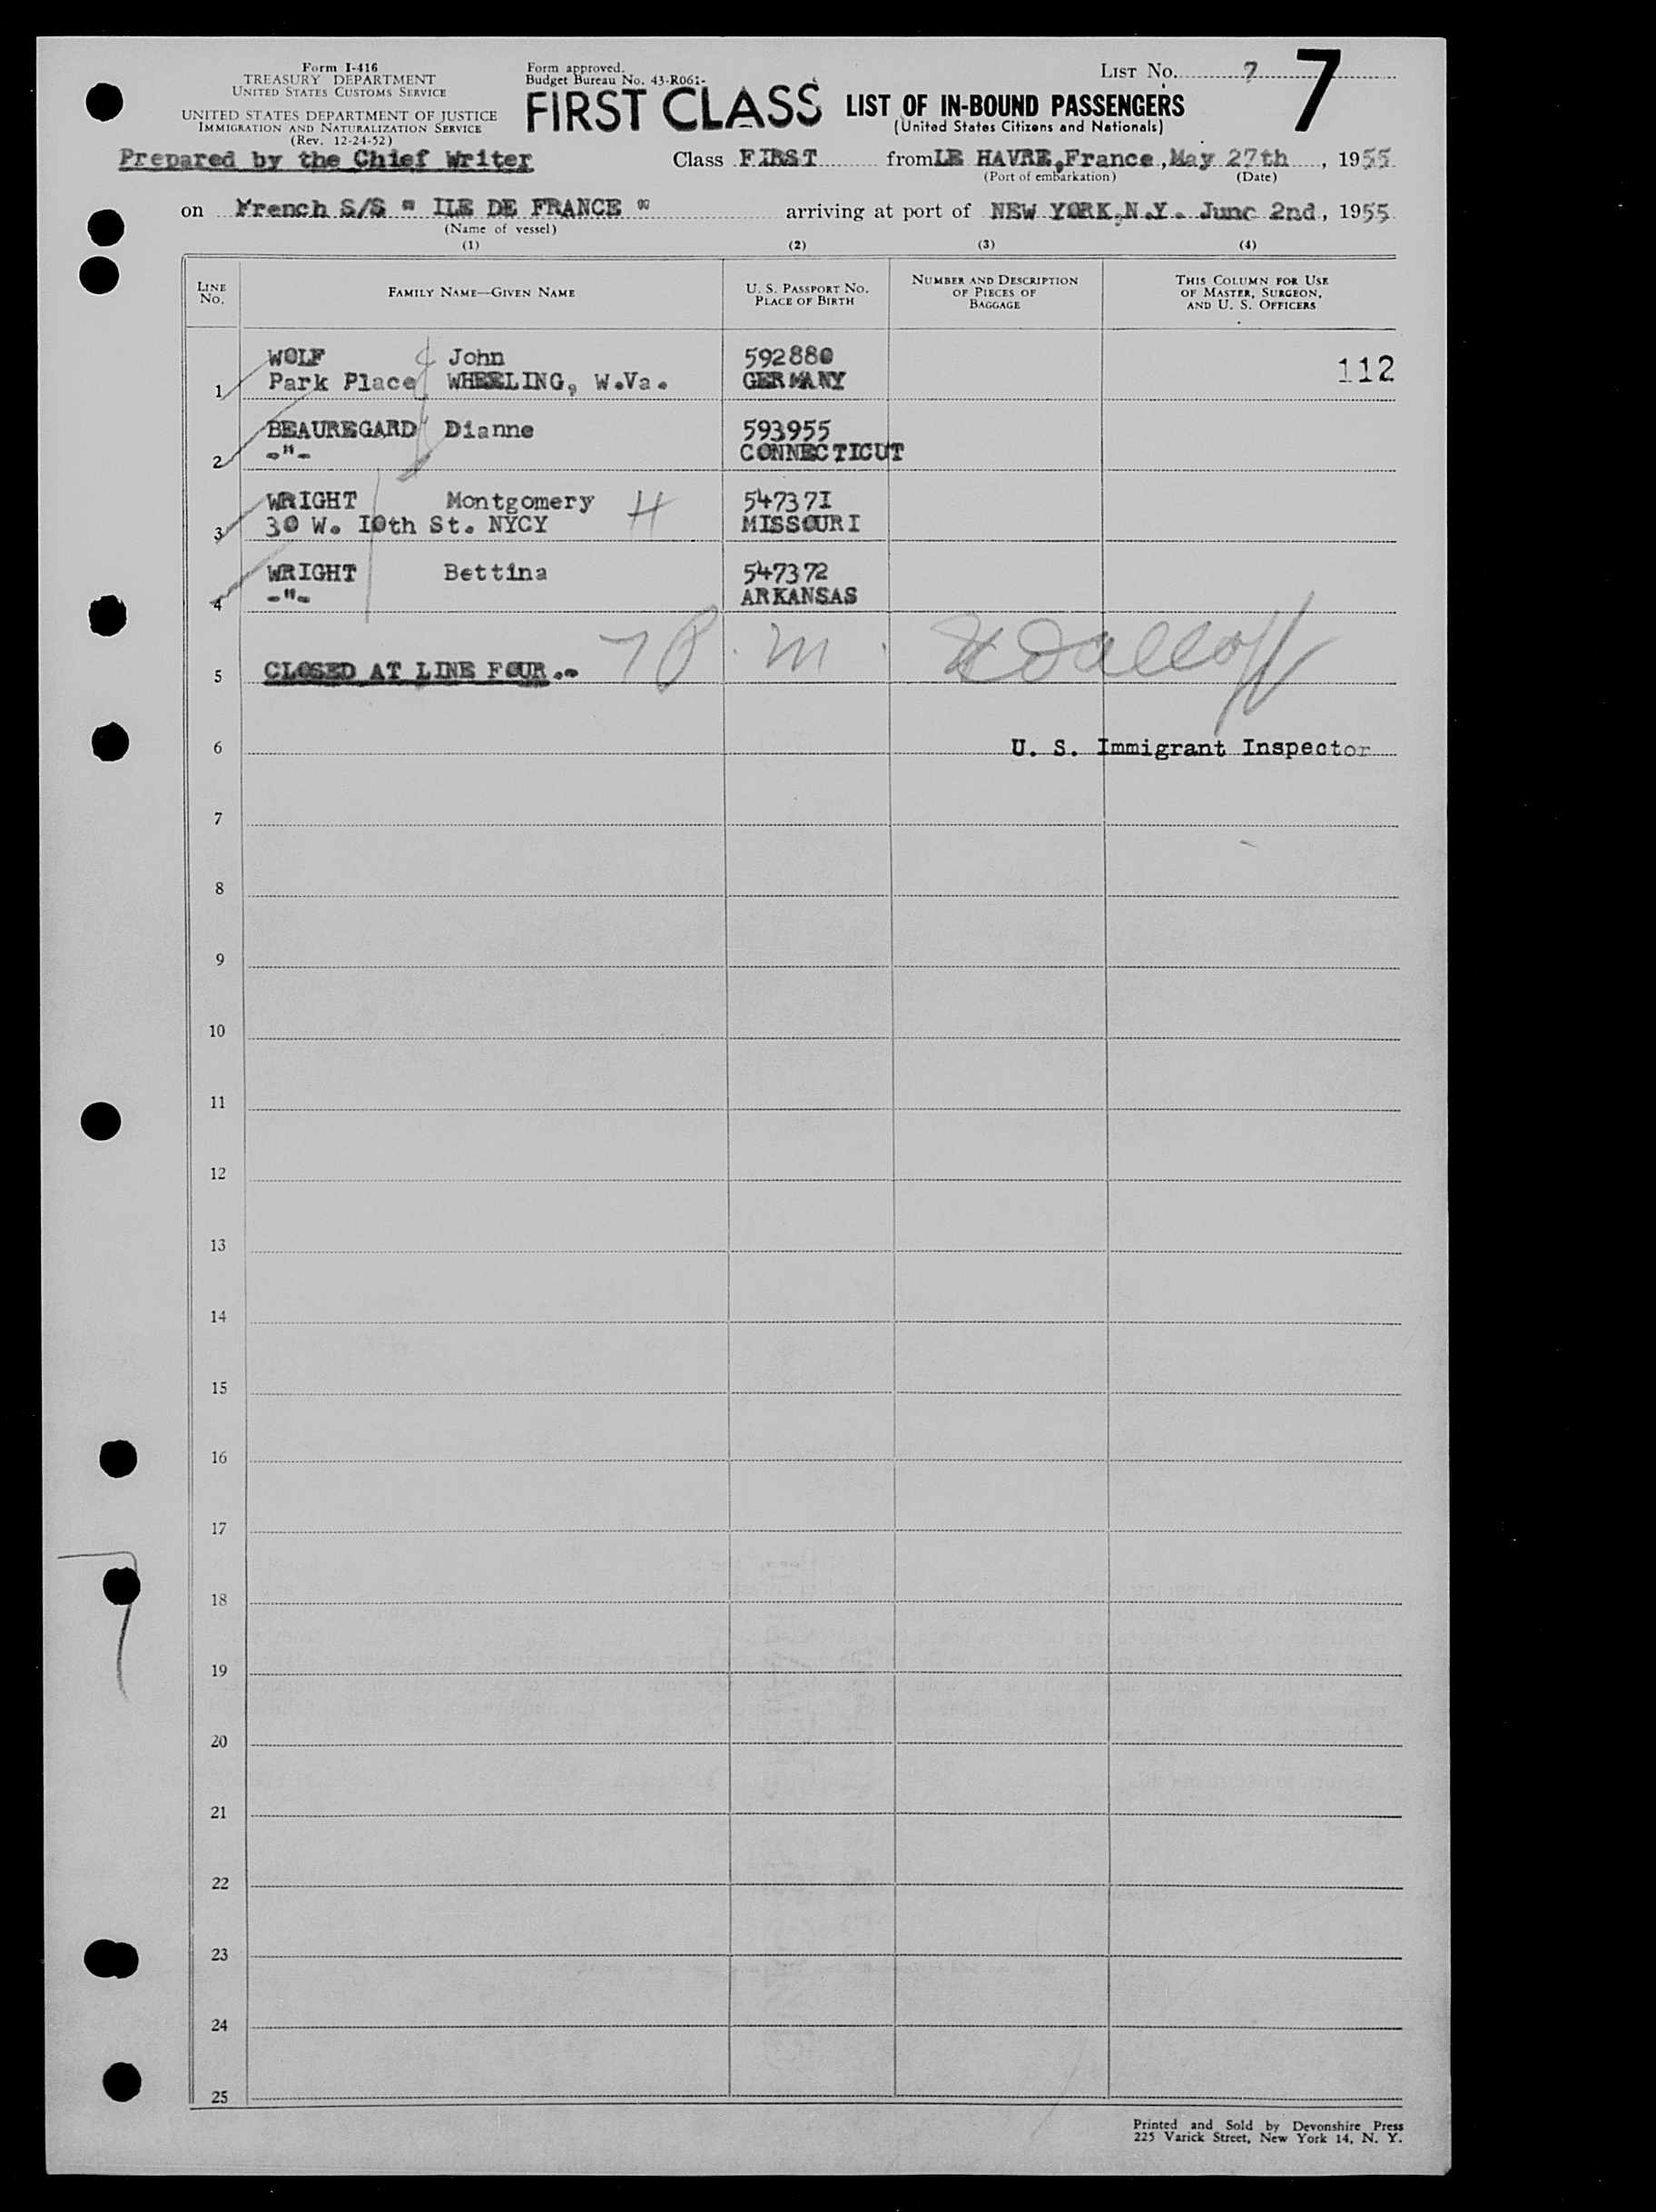 Form I-416
TREASURY DEPARTMENT
UNITED STATES CUSTOMS SERVICE
UNITED STATES DEPARTMENT OF JUSTICE
IMMIGRATION AND NATURALIZATION SERVICE
(Rev. 12-24-52)
Prepared by the Chief Writer
Form approved.
Budget Bureau No. 43-R061-
FIRST CLASS LIST OF IN-BOUND PASSENGERS
(United States Citizens and Nationals)
LIST No. 7 7
Class FIRST from LE HAVRE, France, May 27th, 1955
(Port of embarkation) (Date)
on French S/S " ILE DE FRANCE " arriving at port of NEW YORK, N.Y. June 2nd, 1955
(Name of vessel)
(1) (2) (3) (4)
LINE No. FAMILY NAME—GIVEN NAME U. S. PASSPORT NO. PLACE OF BIRTH NUMBER AND DESCRIPTION OF PIECES OF BAGGAGE THIS COLUMN FOR USE OF MASTER, SURGEON, AND U. S. OFFICERS
WOLF John 592880 112
1 Park Place WHEELING, W.Va. GERMANY
BEAUREGARD Dianne 593955
2 -"- CONNECTICUT
WRIGHT Montgomery H 547371
3 30 W. 10th St. NYCY MISSOURI
WRIGHT Bettina 547372
4 -"- ARKANSAS
5 CLOSED AT LINE FOUR.-
6 U. S. Immigrant Inspector
7
8
9
10
11
12
13
14
15
16
17
18
19
20
21
22
23
24
25
Printed and Sold by Devonshire Press
225 Varick Street, New York 14, N. Y.